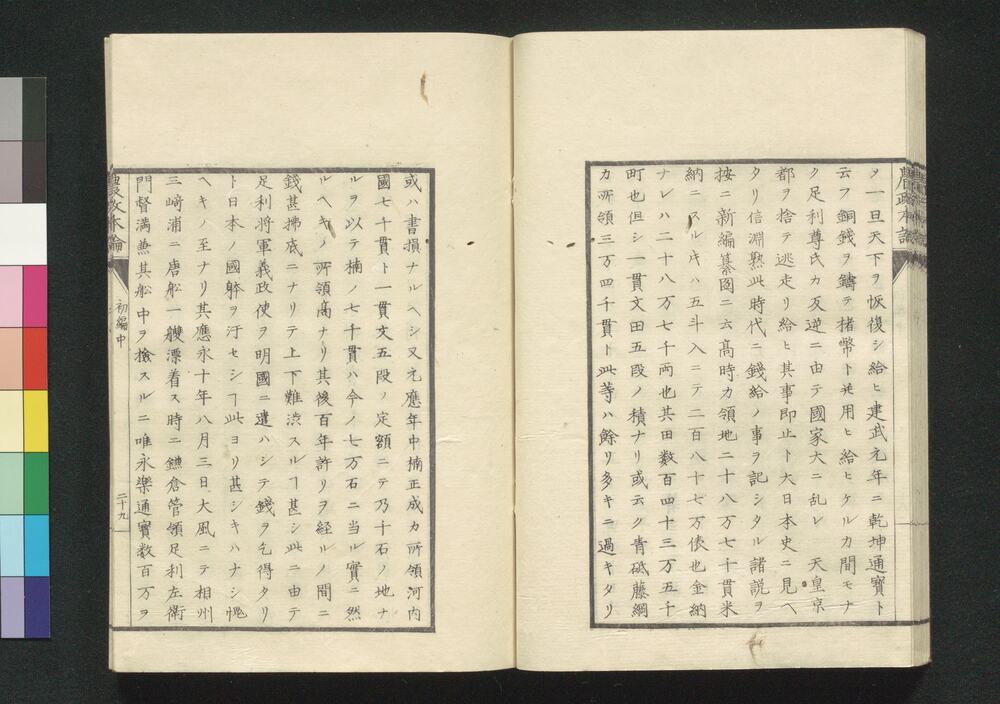 メ一旦天下ヲ恢復シ給ヒ建武元年ニ乾坤通寶ト
云フ銅銭ヲ鑄テ楮幣ト並用ヒ給ヒケルカ間モナ
ク足利尊氏カ反逆ニ由テ國家大ニ乱レ 天皇京
都ヲ捨テ逃走リ給ヒ其事即止ト大日本史ニ見ヘ
タリ信淵熟此時代ニ錢給ノ事ヲ記シタル諸説ヲ
按ニ新編纂圖ニ云高時カ領地二十八万七千貫米
納ニスル片ハ五斗入ニテ二百八十七万俵也金納
ナレハ二十八万七千両也其田数百四十三万五千
町也但シ一貫文田五段ノ積ナリ或云ク青砥藤綱
カ所領三万四千貫ト此等ハ餘リ多キニ過キタリ
或ハ書損ナルヘシ又元應年中楠正成カ所領河内
國七十貫ト一貫文五段ノ定額ニテ乃十石ノ地ナ
ルヲ以テ楠ノ七千貫ハ今ノ七万石ニ当ル實ニ然
ルヘキノ所領高ナリ其後百年許リヲ経ルノ間ニ
錢甚拂底ニナリテ上下難渋スルヿ甚シ此ニ由テ
足利将軍義政使ヲ明國ニ遣ハシテ錢ヲ乞得タリ
ト日本ノ國躰ヲ汙セシヿ此ヨリ甚シキハナシ愧
ヘキノ至ナリ其應永十年八月三日大風ニテ相州
三﨑浦ニ唐舩一艘漂着ス時ニ鎌倉管領足利左衛
門督満兼其舩中ヲ検スルニ唯永樂通寳数百万ヲ
農政本論
初編中
二十九